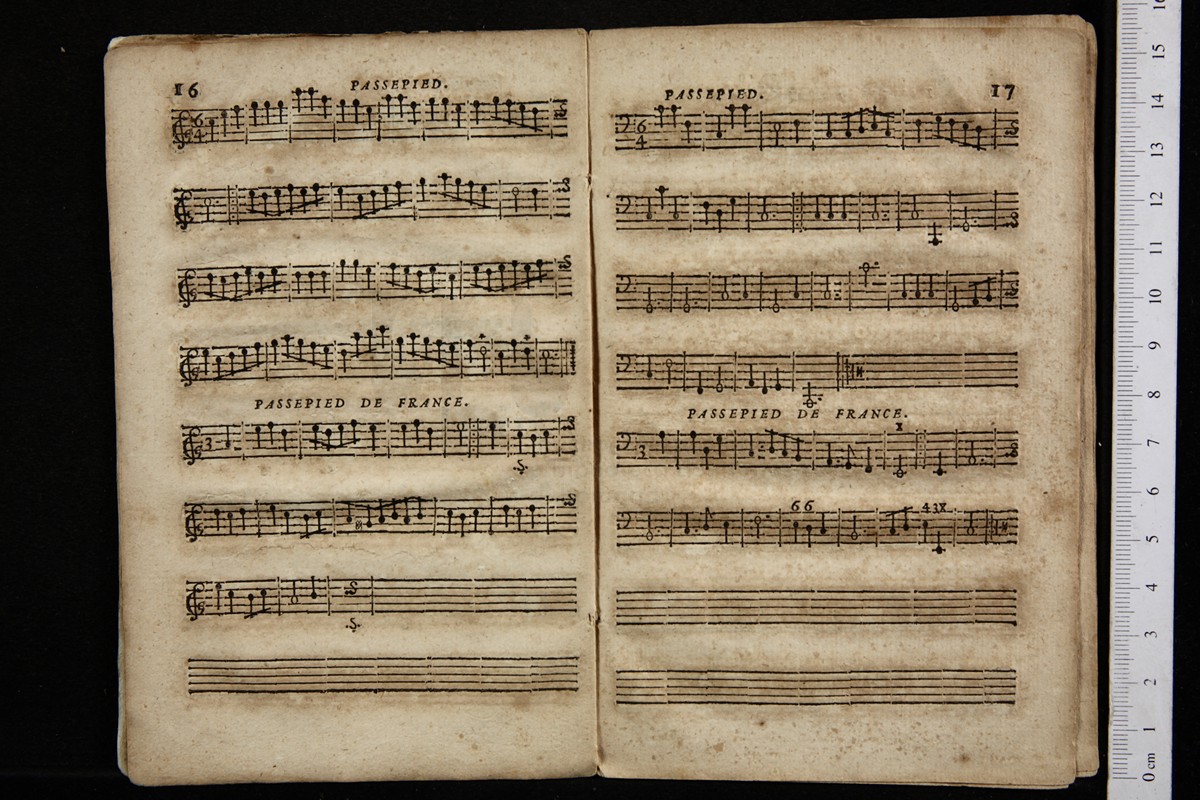 16
PASSEPIED.
6
4
PASSEPIED DE FRANCE.
3
.S.
S
.S.
PASSEPIED.
17
6
4
PASSEPIED DE FRANCE.
x
3
6 6
4 3 x
0 cm
1
2
3
4
5
6
7
8
9
10
11
12
13
14
15
16